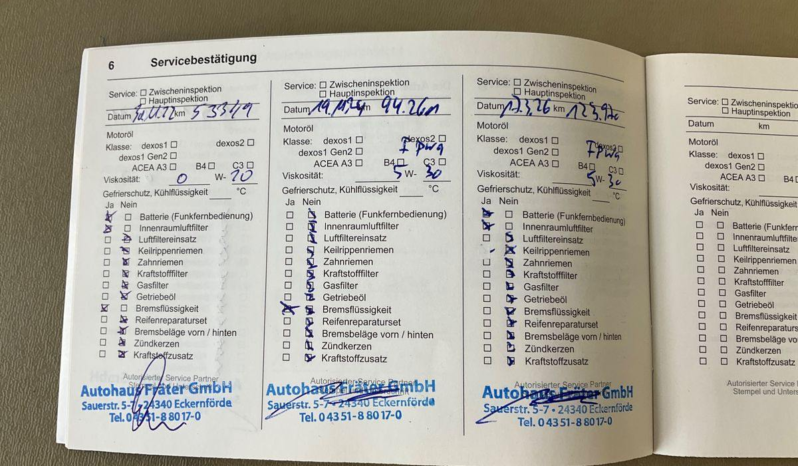 6 Servicebestätigung
Service: Zwischeninspektion
Hauptinspektion
Datum km 53349
Motoröl
Klasse: dexos1 dexos2
dexos1 Gen2
ACEA A3 B4 C3
Viskosität: 0 W- 20
Gefrierschutz, Kühlflüssigkeit °C
Ja Nein
Batterie (Funkfernbedienung)
Innenraumluftfilter
Luftfiltereinsatz
Keilrippenriemen
Zahnriemen
Kraftstofffilter
Gasfilter
Getriebeöl
Bremsflüssigkeit
Reifenreparaturset
Bremsbeläge vorn / hinten
Zündkerzen
Kraftstoffzusatz
Autorisierter Service Partner
Autohaus Fräter GmbH
Sauerstr. 5-7 • 24340 Eckernförde
Tel. 0 43 51-8 80 17-0
Service: Zwischeninspektion
Hauptinspektion
Datum km
Motoröl
Klasse: dexos1 dexos2
dexos1 Gen2
ACEA A3 B4 C3
Viskosität: 5 W- 30
Gefrierschutz, Kühlflüssigkeit °C
Ja Nein
Batterie (Funkfernbedienung)
Innenraumluftfilter
Luftfiltereinsatz
Keilrippenriemen
Zahnriemen
Kraftstofffilter
Gasfilter
Getriebeöl
Bremsflüssigkeit
Reifenreparaturset
Bremsbeläge vorn / hinten
Zündkerzen
Kraftstoffzusatz
Autorisierter Service Partner
Autohaus Fräter GmbH
Sauerstr. 5-7 • 24340 Eckernförde
Tel. 0 43 51-8 80 17-0
Service: Zwischeninspektion
Hauptinspektion
Datum km
Motoröl
Klasse: dexos1
dexos1 Gen2
ACEA A3 B4 C3
Viskosität: 5 W- 30
Gefrierschutz, Kühlflüssigkeit °C
Ja Nein
Batterie (Funkfernbedienung)
Innenraumluftfilter
Luftfiltereinsatz
Keilrippenriemen
Zahnriemen
Kraftstofffilter
Gasfilter
Getriebeöl
Bremsflüssigkeit
Reifenreparaturset
Bremsbeläge vorn / hinten
Zündkerzen
Kraftstoffzusatz
Autorisierter Service Partner
Autohaus Fräter GmbH
Sauerstr. 5-7 • 24340 Eckernförde
Tel. 0 43 51-8 80 17-0
Service: Zwischeninspektio
Hauptinspektion
Datum km
Motoröl
Klasse: dexos1
dexos1 Gen2
ACEA A3 B4
Viskosität: W-
Gefrierschutz, Kühlflüssigkeit
Ja Nein
Batterie (Funkfer
Innenraumluftfilte
Luftfiltereinsatz
Keilrippenriemen
Zahnriemen
Kraftstofffilter
Gasfilter
Getriebeöl
Bremsflüssigkeit
Reifenreparaturs
Bremsbeläge vo
Zündkerzen
Kraftstoffzusatz
Autorisierter Service
Stempel und Unters